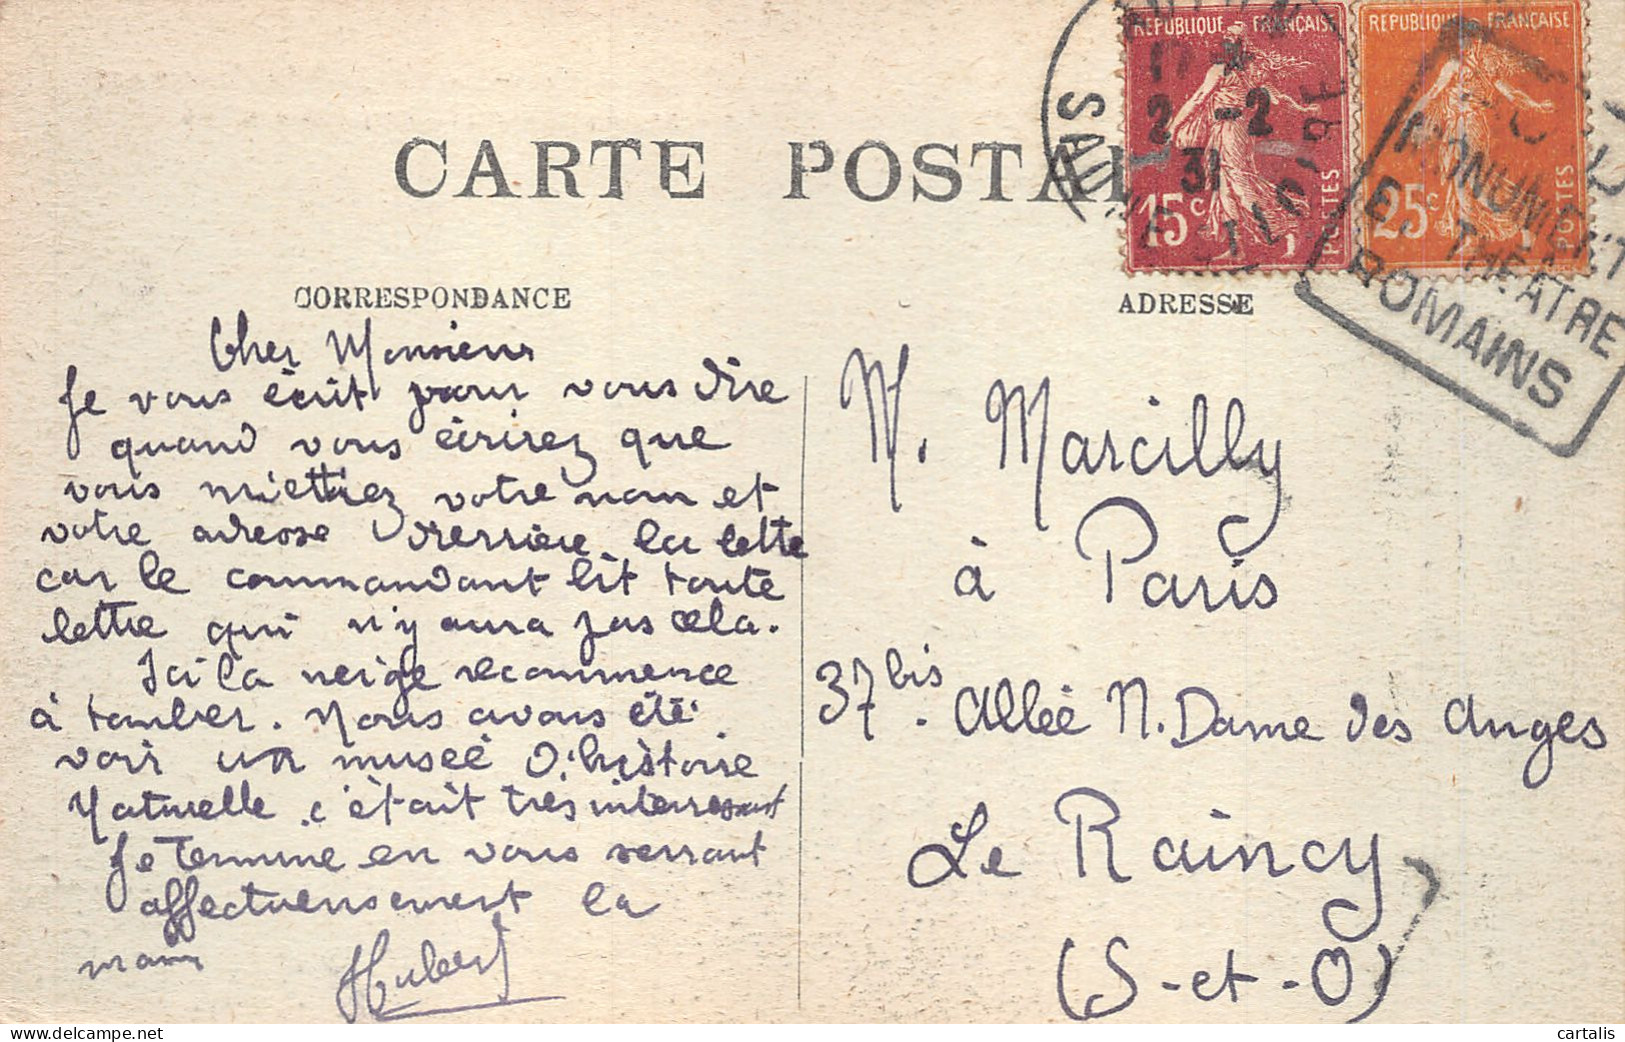 CARTE POSTA
REPUBLIQUE FRANÇAISE
15c
POSTES
REPUBLIQUE FRANÇAISE
25c
POSTES
2 -2
31
SAONE
LOIRE
MONUMENT
ET THEATRE
ROMAINS
CORRESPONDANCE
ADRESSE
Cher Monsieur
Je vous écrit pour vous dire
quand vous écrirez que
vous miettriez votre nom et
votre adresse derrière la lette
car le commandant lit toute
lettre qui n'y aura pas cela.
Ici la neige recommence
à tomber. Nous avons été
voir un musée d'histoire
Naturelle c'était très interressant
Je termine en vous serrant
affectueusement la
main
Hubert
M. Marcilly
à Paris
37 bis. Allée N. Dame des Anges
Le Raincy
(S-et-O)
cartalis